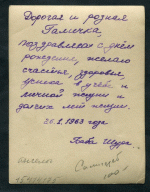 Дорогая и родная
Галичка,
поздравляю с днём
рождения, желаю
счастья, здоровья,
успехов в учёбе и
личной жизни и
долгих лет жизни.
26.I.1963 года
Баба Шура.